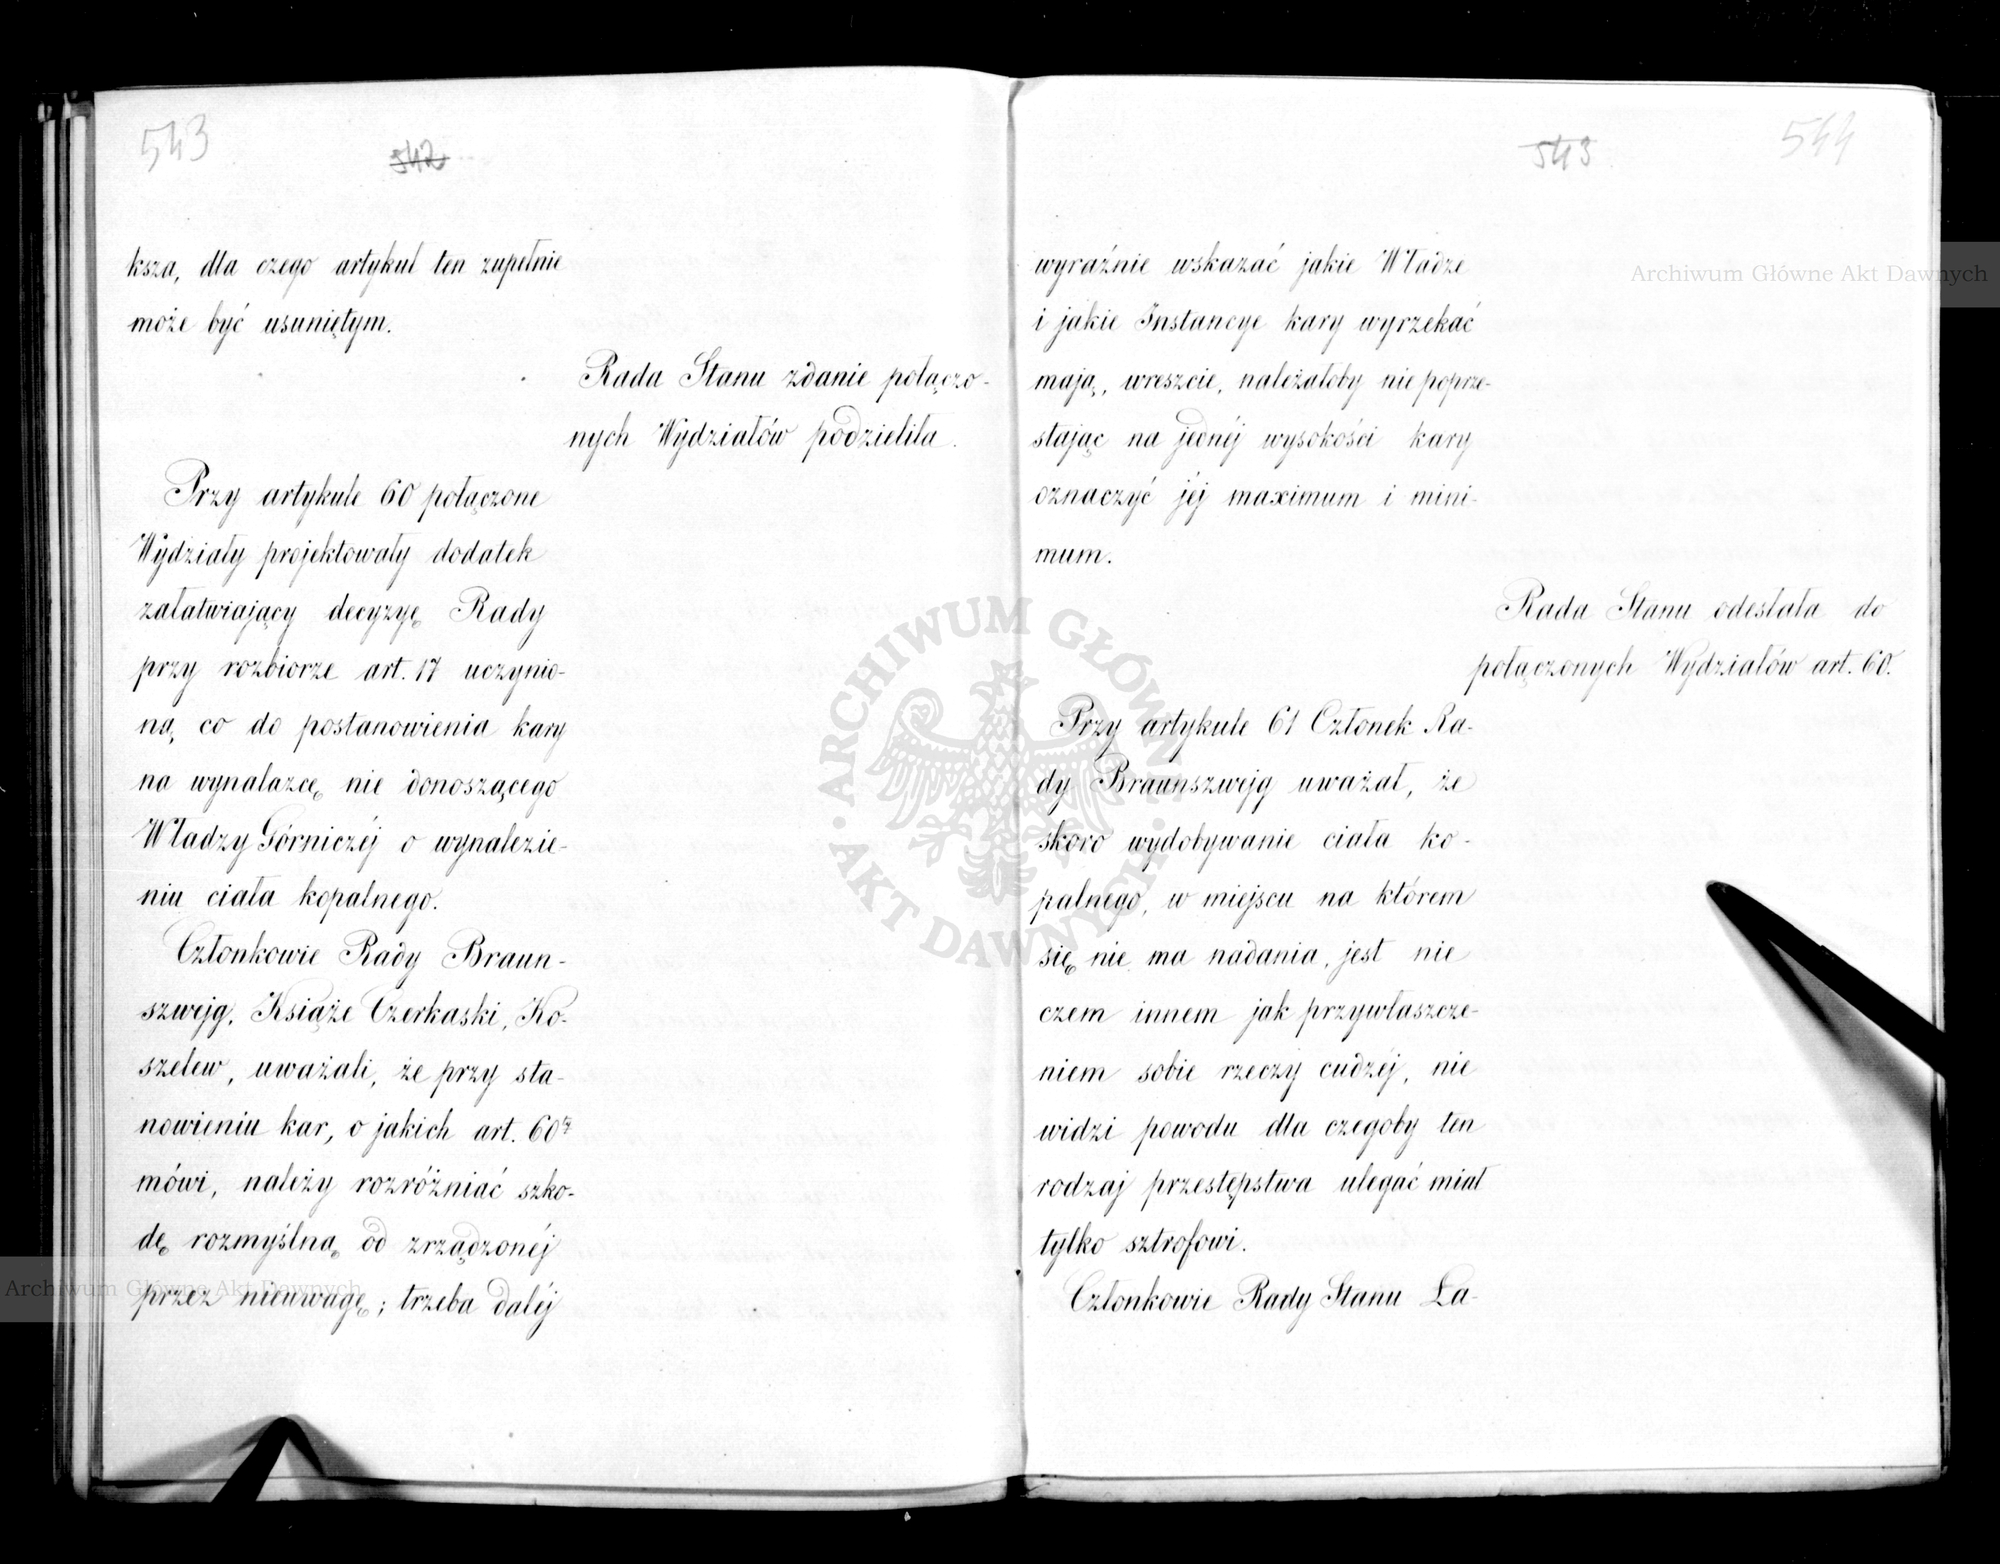 543
542
ksza, dla czego artykuł ten zupełnie
może być usuniętym.
Rada Stanu zdanie połączo-
nych Wydziałów podzieliła.
Przy artykule 60 połączone
Wydziały projektowały dodatek
załatwiający decyzyę Rady
przy rozbiorze art. 17 uczynio-
ną co do postanowienia kary
na wynalazcę nie donoszącego
Władzy Górniczéj o wynalezie-
niu ciała kopalnego.
Członkowie Rady Braun-
szwejg, Książe Czerkaski, Ko-
szelew, uważali, że przy sta-
nowieniu kar, o jakich art. 60ty
mówi, należy rozróżniać szko-
dę rozmyślną od zrządzonéj
przez nieuwagę; trzeba daléj
543
544
wyraźnie wskazać jakie Władze
i jakie Instancye kary wyrzekać
mają, wreszcie, należałoby nie poprze-
stając na jednéj wysokości kary
oznaczyć jéj maximum i mini-
mum.
Rada Stanu odesłała do
połączonych Wydziałów art. 60.
Przy artykule 61 Członek Ra-
dy Braunszwejg uważał, że
skoro wydobywanie ciała ko-
palnego, w miejscu na którem
się nie ma nadania, jest nie
czem innem jak przywłaszcze-
niem sobie rzeczy cudzéj, nie
widzi powodu dla czegoby ten
rodzaj przestępstwa ulegać miał
tylko sztrofowi.
Członkowie Rady Stanu Ła-
Archiwum Główne Akt Dawnych
Archiwum Główne Akt Dawnych
ARCHIWUM GŁÓWNE · AKT DAWNYCH ·